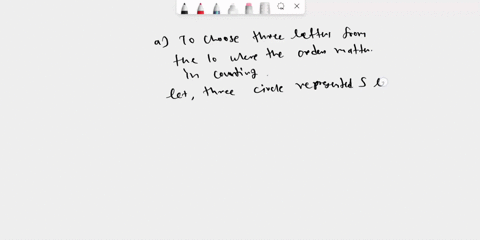 a) To choose three letter from
the 10 where the order matter
in counting.
let, three circle represented 5 l